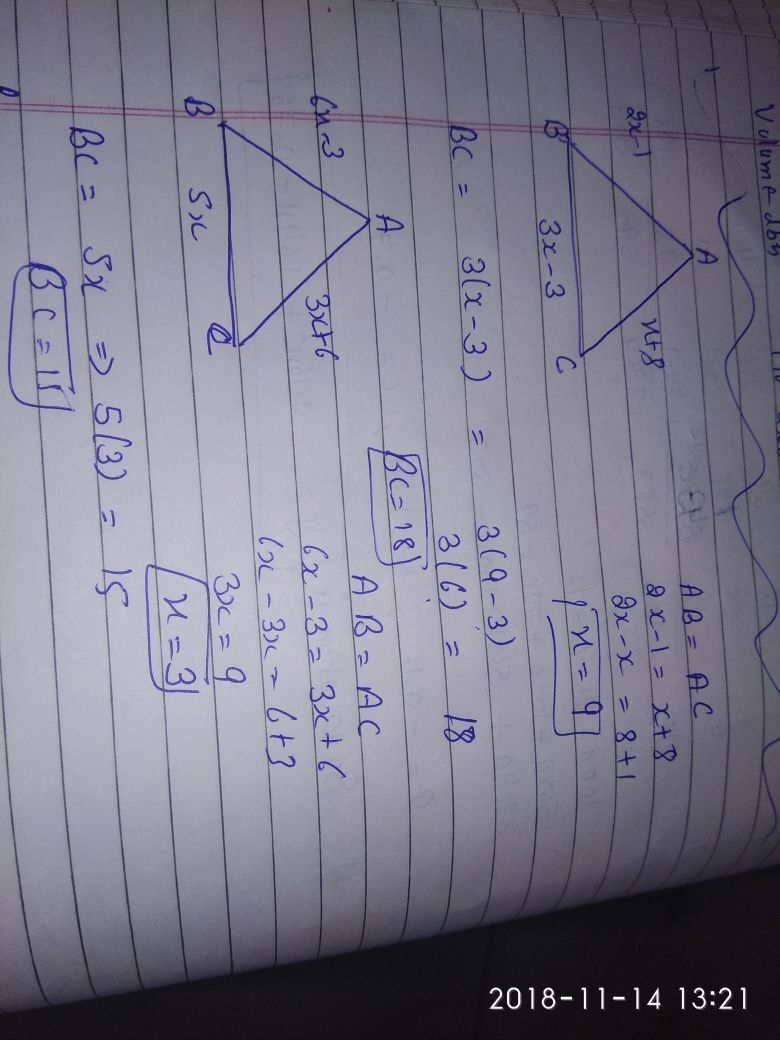 A
2x-1
x+8
B
3x-3
C
AB = AC
2x-1 = x+8
2x-x = 8+1
x = 9
BC = 3(x-3) = 3(9-3)
3(6) = 18
BC=18
A
6x-3
3x+6
B
5x
C
AB = AC
6x-3 = 3x+6
6x-3x = 6+3
3x = 9
x=3
BC = 5x => 5(3) = 15
BC=15
2018-11-14 13:21